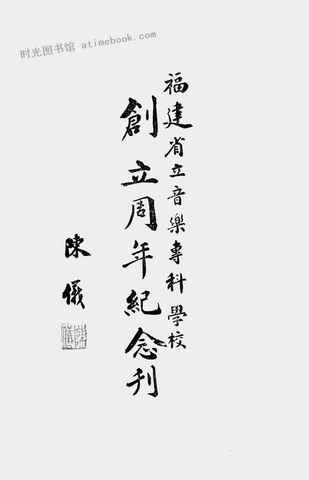 时光图书馆 atimebook.com
福建省立音樂專科學校
創立周年紀念刊
陳儀